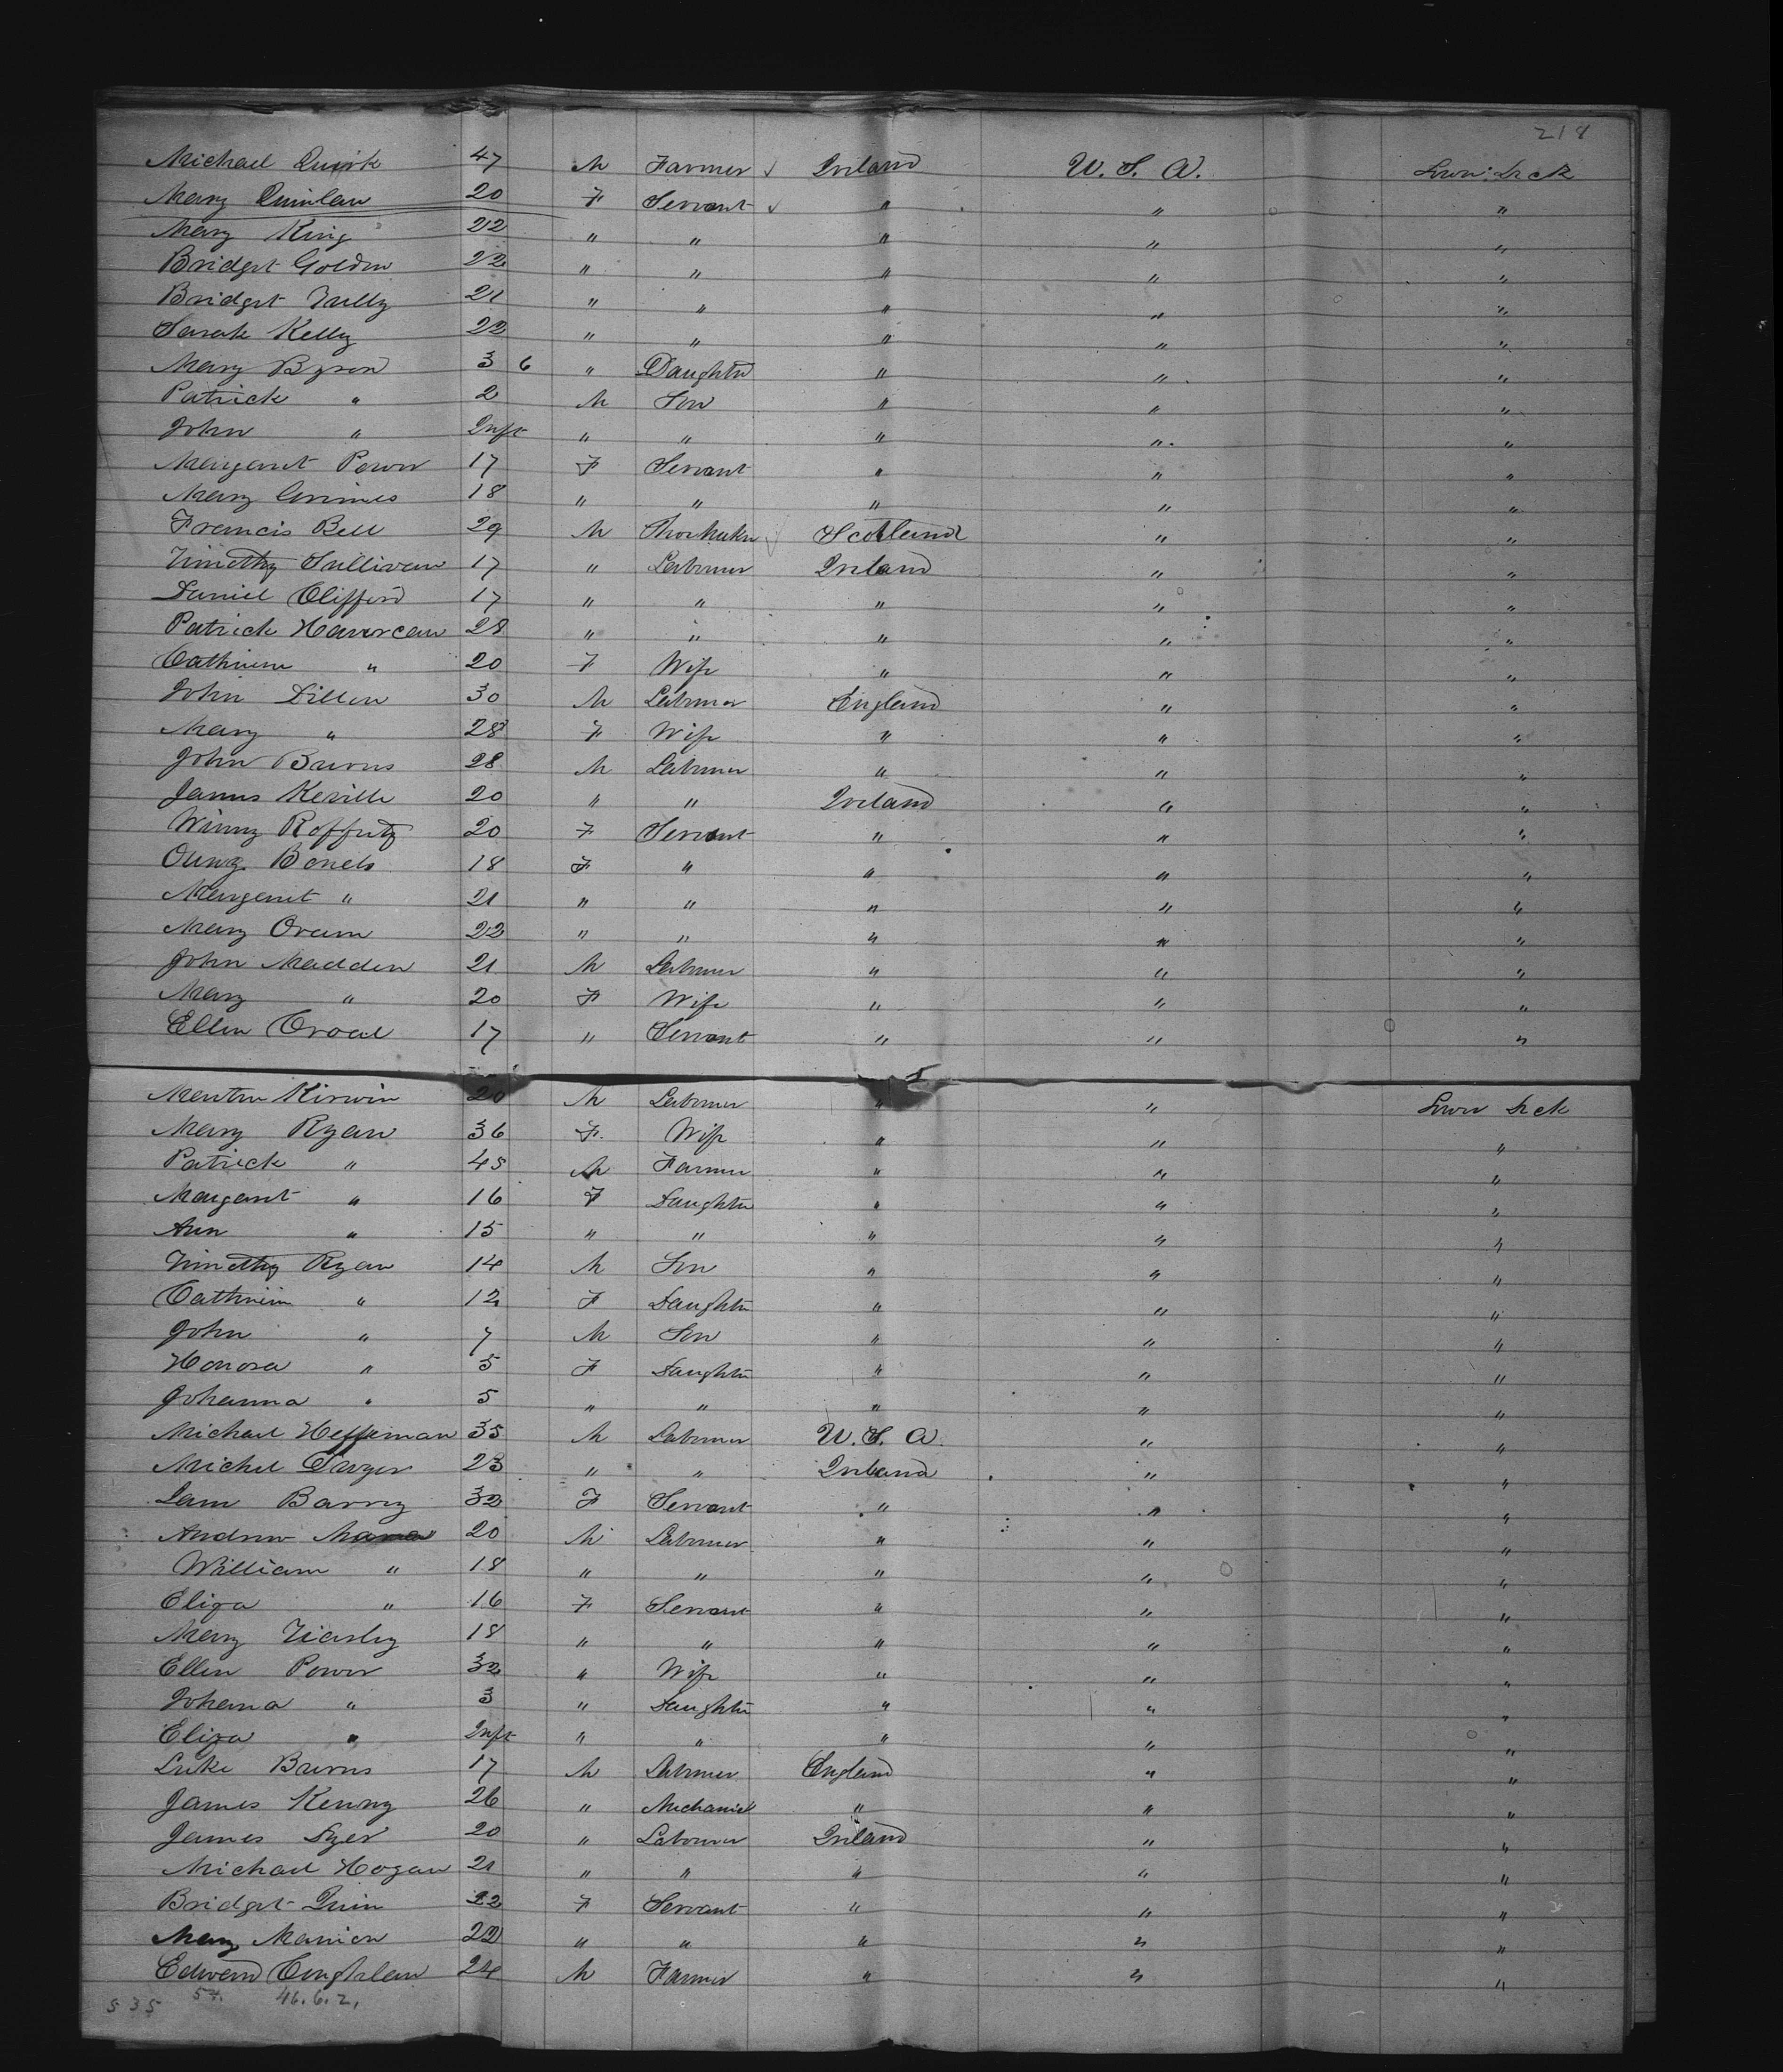 218
Michael Quirk 47 M Farmer ✓ Ireland U. S. A. Lower Deck
Mary Quinlan 20 F Servant ✓ " " "
Mary King 22 " " " " "
Bridget Golden 22 " " " " "
Bridget Tully 21 " " " " "
Sarah Kelly 22 " " " " "
Mary Byron 3 6 " Daughter " " "
Patrick " 2 M Son " " "
John " Inft " " " " "
Margaret Power 17 F Servant " " "
Mary Grimes 18 " " " " "
Francis Bell 29 M Scotland " "
Timothy Sullivan 17 " Labourer Ireland " "
Daniel Clifford 17 " " " " "
Patrick 28 " " " " "
Catherine " 20 F Wife " " "
John Dillon 30 M Labourer England " "
Mary " 28 F Wife " " "
John Burns 28 M Labourer " " "
James Keville 20 " " Ireland " "
Winny 20 F Servant " " "
18 F " " " "
Margaret " 21 " " " " "
Mary Oram 22 " " " " "
John Madden 21 M Labourer " " "
Mary " 20 F Wife " " "
Ellen 17 " Servant " " "
Kirwin 20 M Labourer " " Lower Deck
Mary Ryan 36 F. Wife " " "
Patrick " 45 M Farmer " " "
Margaret " 16 F Daughter " " "
Ann " 15 " " " " "
Timothy Ryan 14 M Son " " "
Catherine " 12 F Daughter " " "
John " 7 M Son " " "
Honora " 5 F Daughter " " "
Johanna " 5 " " " " "
Michael Heffernan 35 M Labourer U. S. A. " "
Michel Dwyer 23 " " Ireland " "
Barry 32 F Servant " " "
Andrew 20 M Labourer " " "
William " 18 " " " " "
Eliza " 16 F Servant " " "
Mary 18 " " " " "
Ellen Power 32 " Wife " " "
Johana " 3 " Daughter " " "
Eliza " Inft " " " " "
Luke Burns 17 M Labourer England " "
James Kenny 26 " Mechanic " " "
James Dyer 20 " Labourer Ireland " "
Michael Hogan 21 " " " " "
Bridget Quin 22 F Servant " " "
Mary Manion 22 " " " " "
Edward Coughlan 24 M Farmer " " "
535 54. 46.6.2.